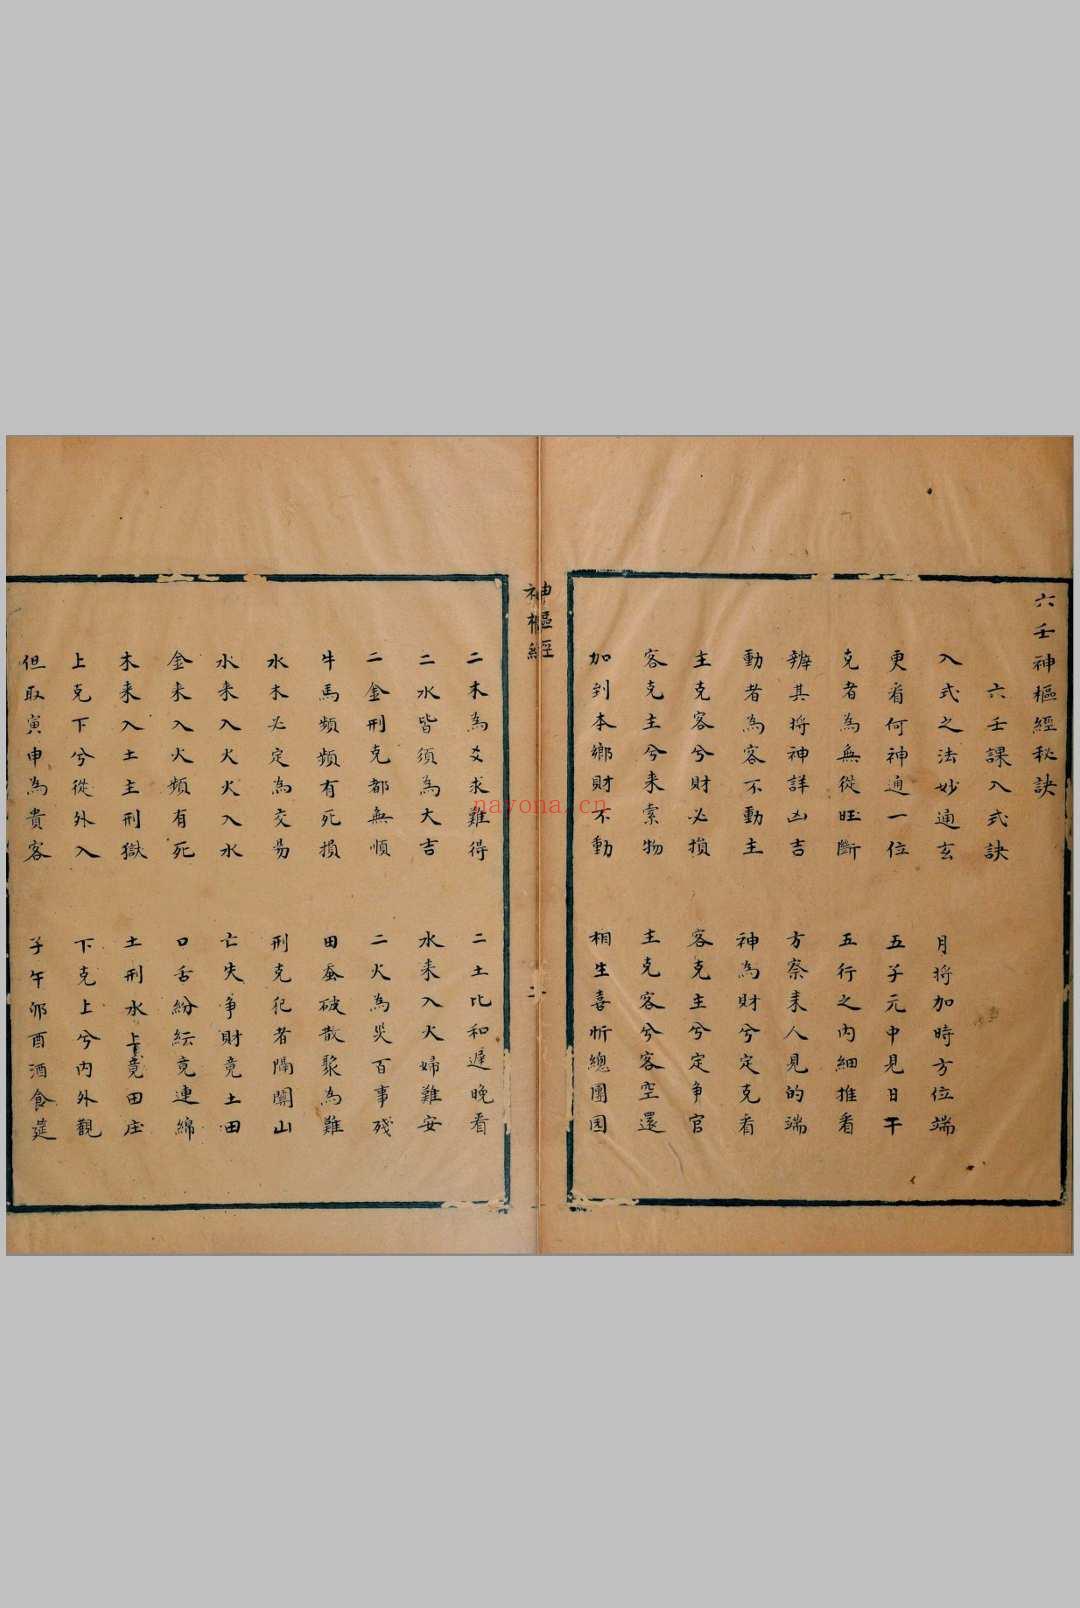 六壬神樞經秘訣
六壬課入式訣
入式之法妙通玄　月將加時方位端
更看何神通一位　五子元中見日干
克者為無從旺斷　五行之內細推看
辨其將神詳凶吉　方察來人見的端
動者為客不動主　神為財兮定克看
主克客兮財必損　客克主兮定争官
客克主兮来索物　主克客兮客空還
加到本鄉財不動　相生喜忻總團圓
神樞經
二
神樞經
二木為爻求難得　二土比和遲晚看
二水皆須為大吉　水来入火婦難安
二金刑克都無順　二火為災百事殘
牛馬頻頻有死損　田蚕破散聚為難
水木必定為交易　刑克犯者隔關山
水来入火火入水　亡失争財竟土田
金来入火頻有死　口舌紛紜竟連綿
木来入土主刑獄　土刑水上竟田庄
上克下兮從外入　下克上兮内外觀
但取寅申為貴客　子午卯酉酒食筵
nayona.cn